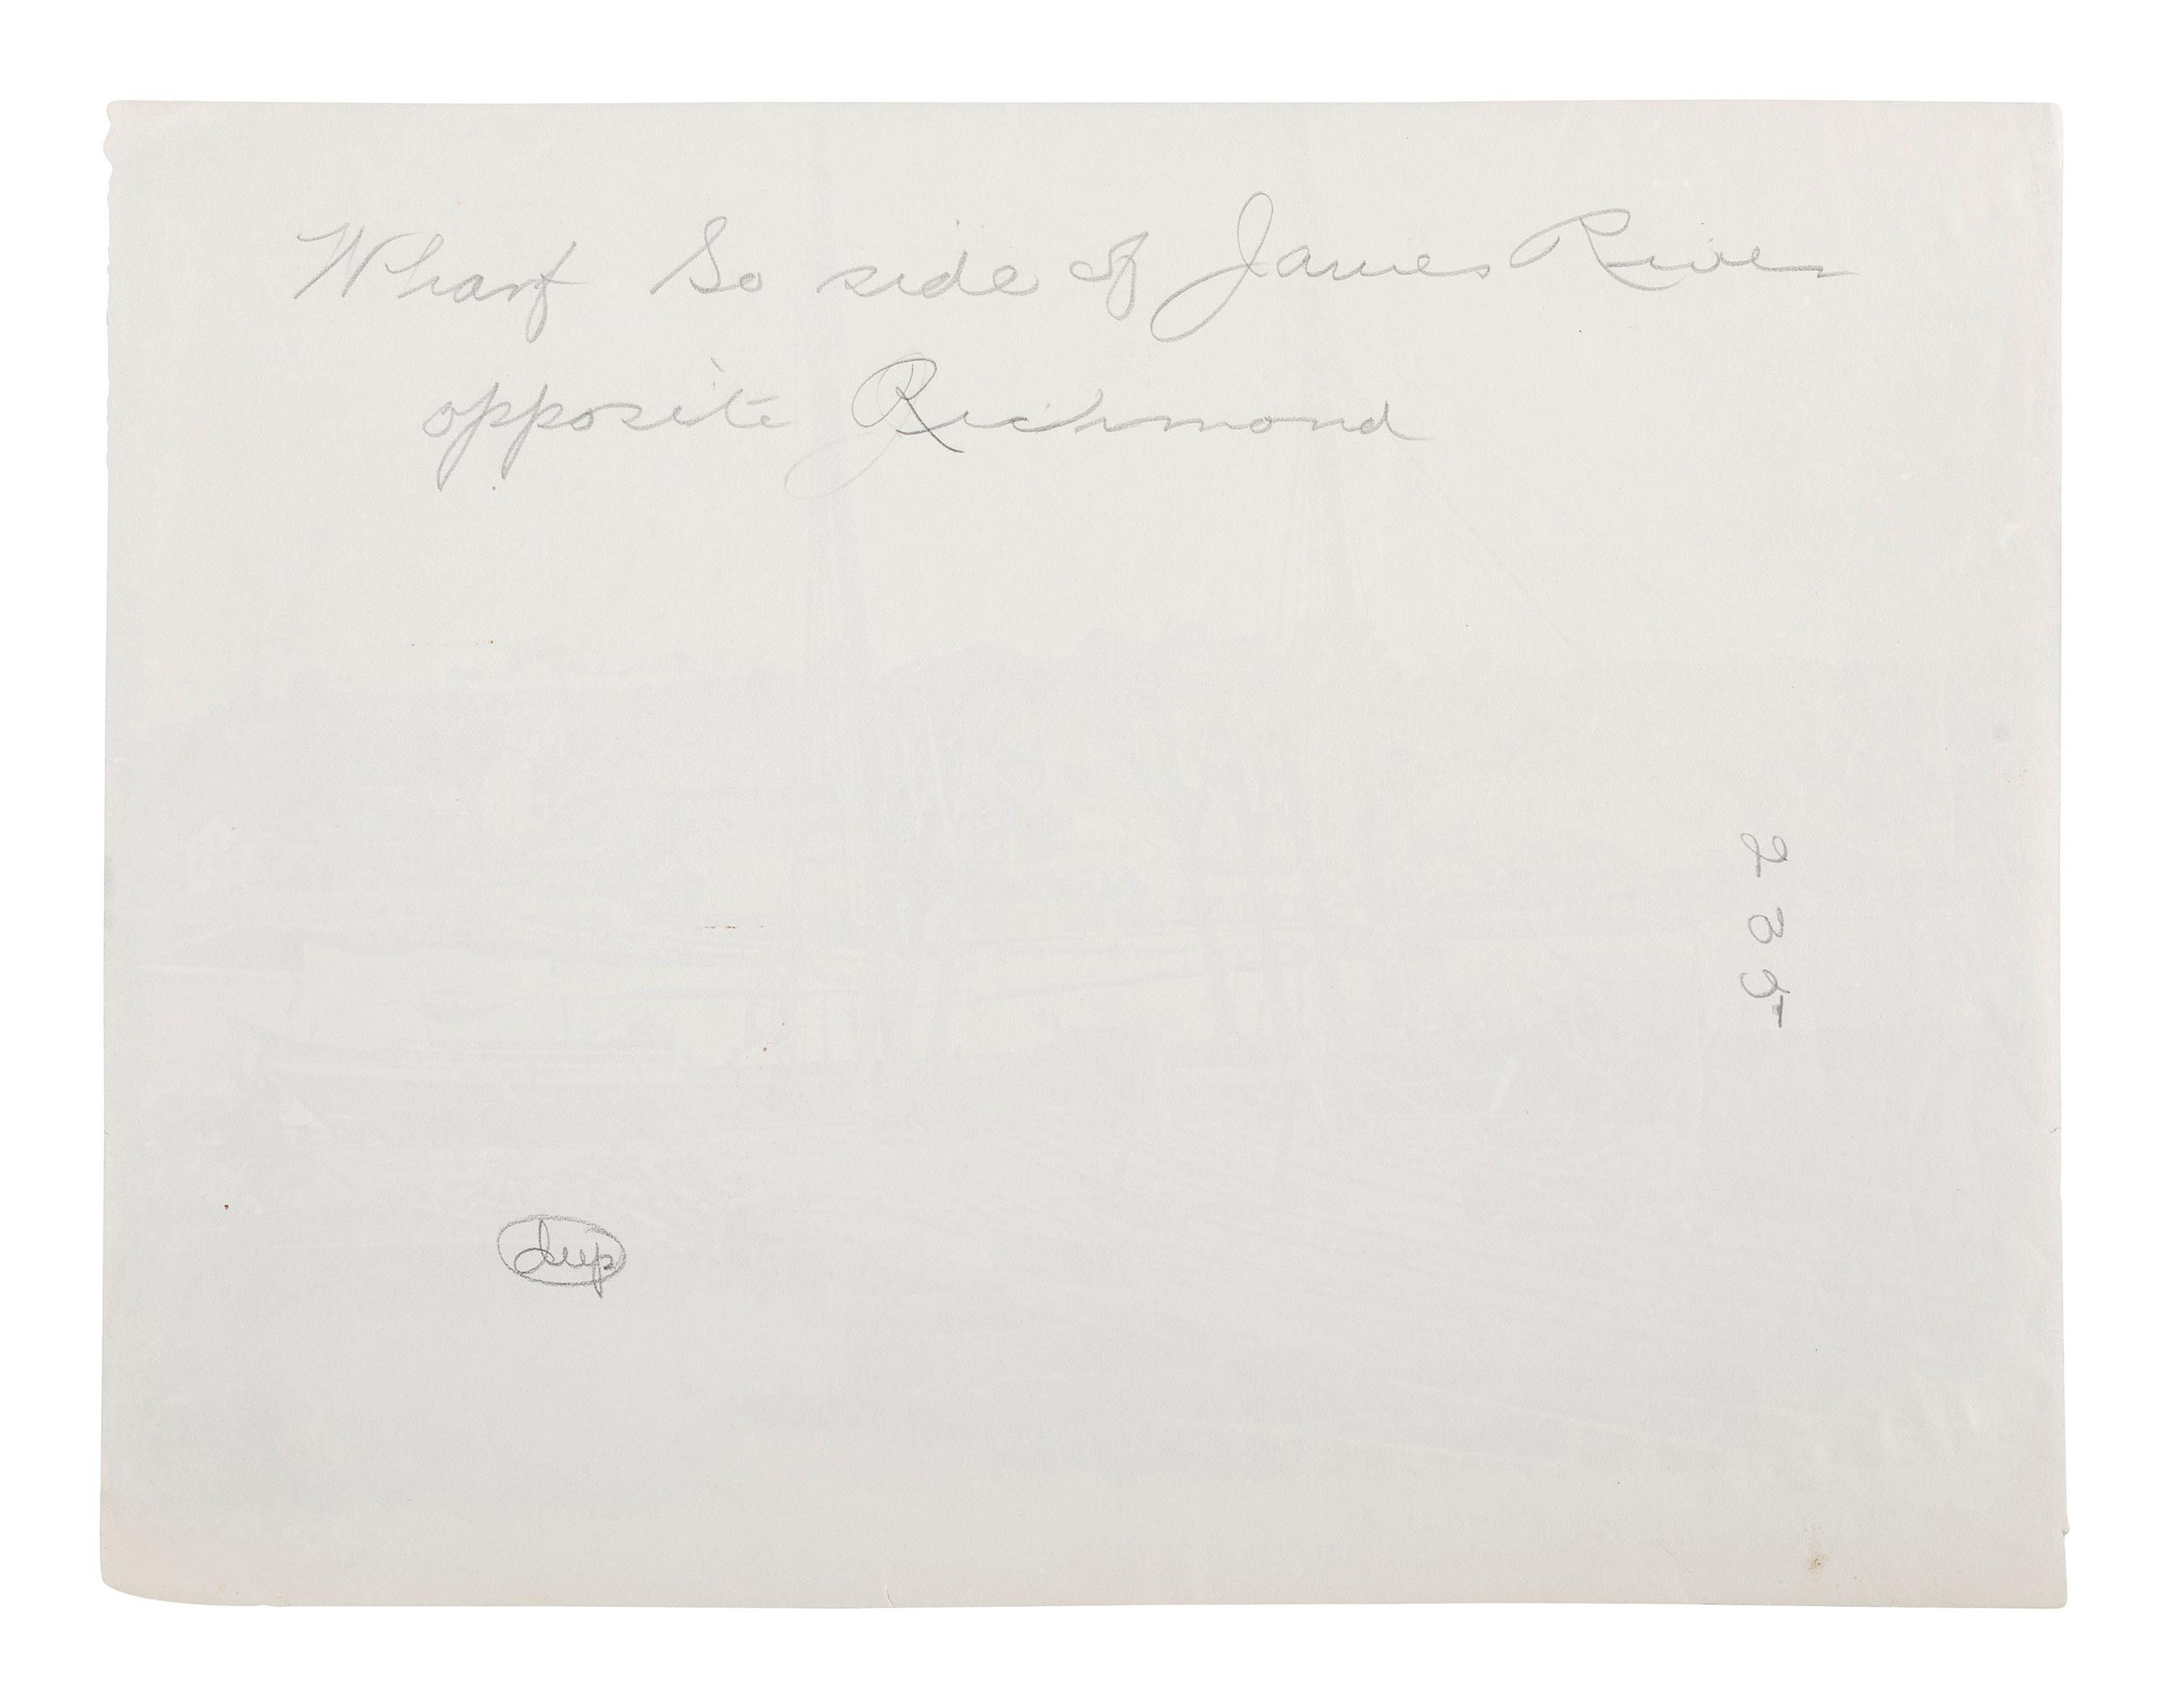 Wharf So side of James River
opposite Richmond
235
dup